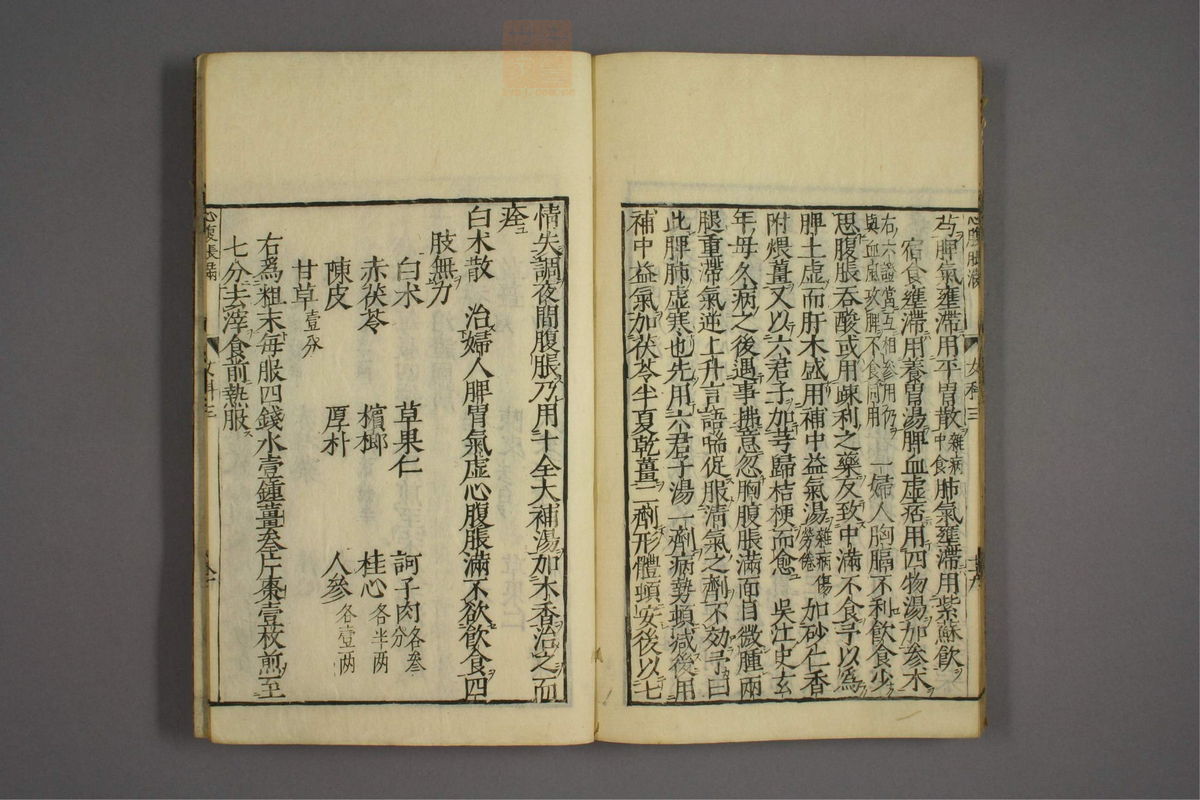 心腹脹滿 女科三
芎脾氣壅滯用平胃散雜病中食肺氣壅滯用紫蘇飲
宿食壅滯用養胃湯脾血虛痞用四物湯加參朮
右六證當互相參用仍
與血風攻脾不食同用 一婦人胸膈不利飲食少
思腹脹吞酸或用疎利之藥反致中滿不食予以為
脾土虛而肝木盛用補中益氣湯雜病傷勞倦加砂仁香
附煨薑又以六君子加芎歸桔梗而愈 吳江史玄
年母久病之後遇事拂意忽胸腹脹滿面目微腫兩
腿重滯氣逆上升言語喘促服清氣之劑不効予曰
此脾肺虛寒也先用六君子湯一劑病勢頓減後用
補中益氣加茯苓半夏乾薑二劑形體頓安後以七
情失調夜間腹脹乃用十全大補湯加木香治之而
痊
白朮散 治婦人脾胃氣虛心腹脹滿不欲飲食四
肢無力
白朮 草果仁 訶子肉各叁分
赤茯苓 檳榔 桂心各半两
陳皮 厚朴 人參各壹两
甘草壹分
右為粗末每服四錢水壹鍾薑叁片棗壹枚煎至
七分去滓食前熱服
心腹脹滿 女科三